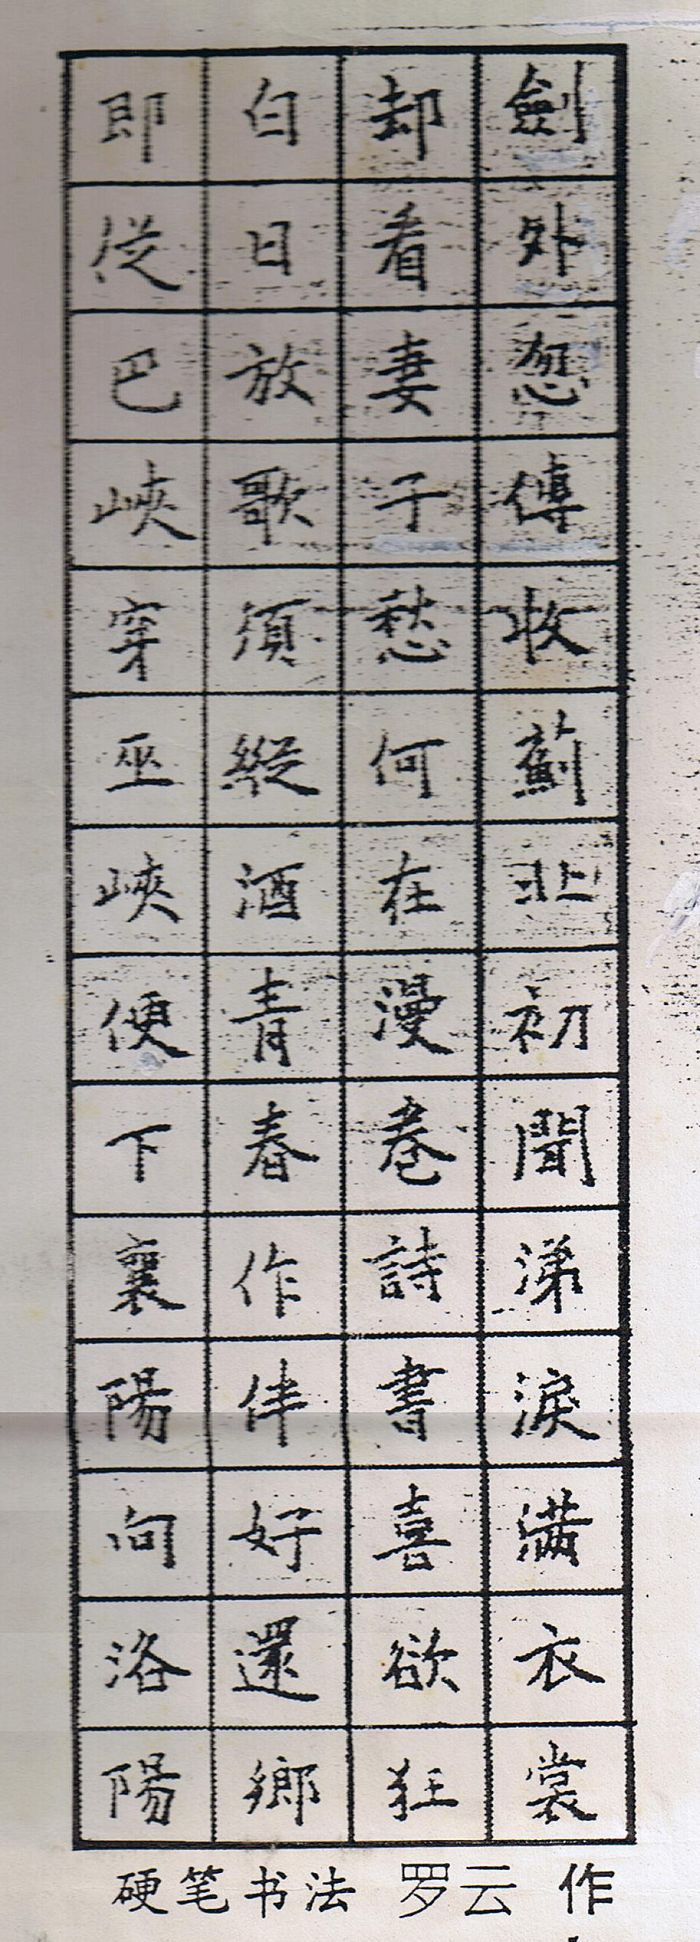 劍外忽傳收薊北初聞涕淚滿衣裳
却看妻子愁何在漫卷詩書喜欲狂
白日放歌須縱酒青春作伴好還鄉
即從巴峽穿巫峽便下襄陽向洛陽
硬笔书法 罗云 作